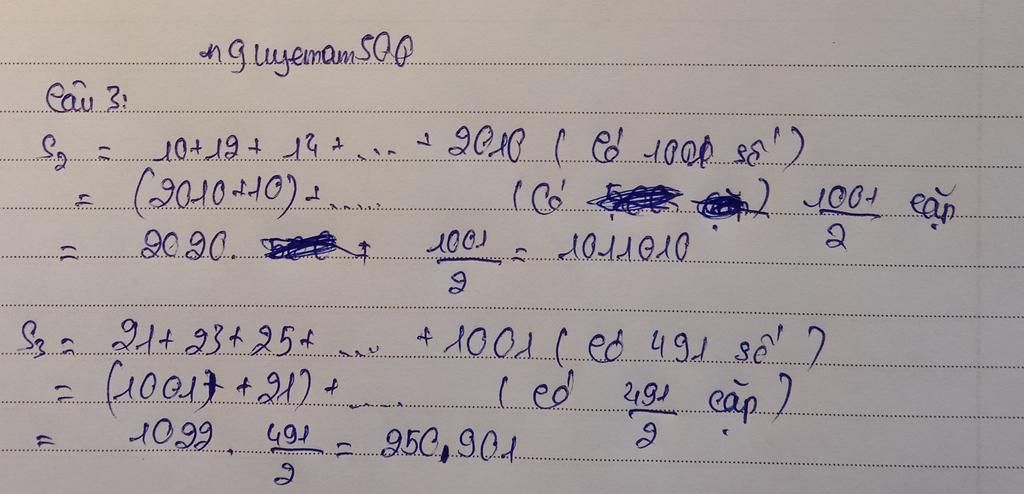 nguyetnam500
Câu 3:
S₂ = 10+12+ 14 + .... + 2010 ( Có 1001 số )
= (2010+10)+ ..... (Có 1001/2 cặp
= 2020. 1001/2 = 1011010
S₃ = 21+23+25+ .... +1001 ( có 491 số )
= (1001 + 21) + ..... ( có 491/2 cặp )
= 1022 . 491/2 = 250,901